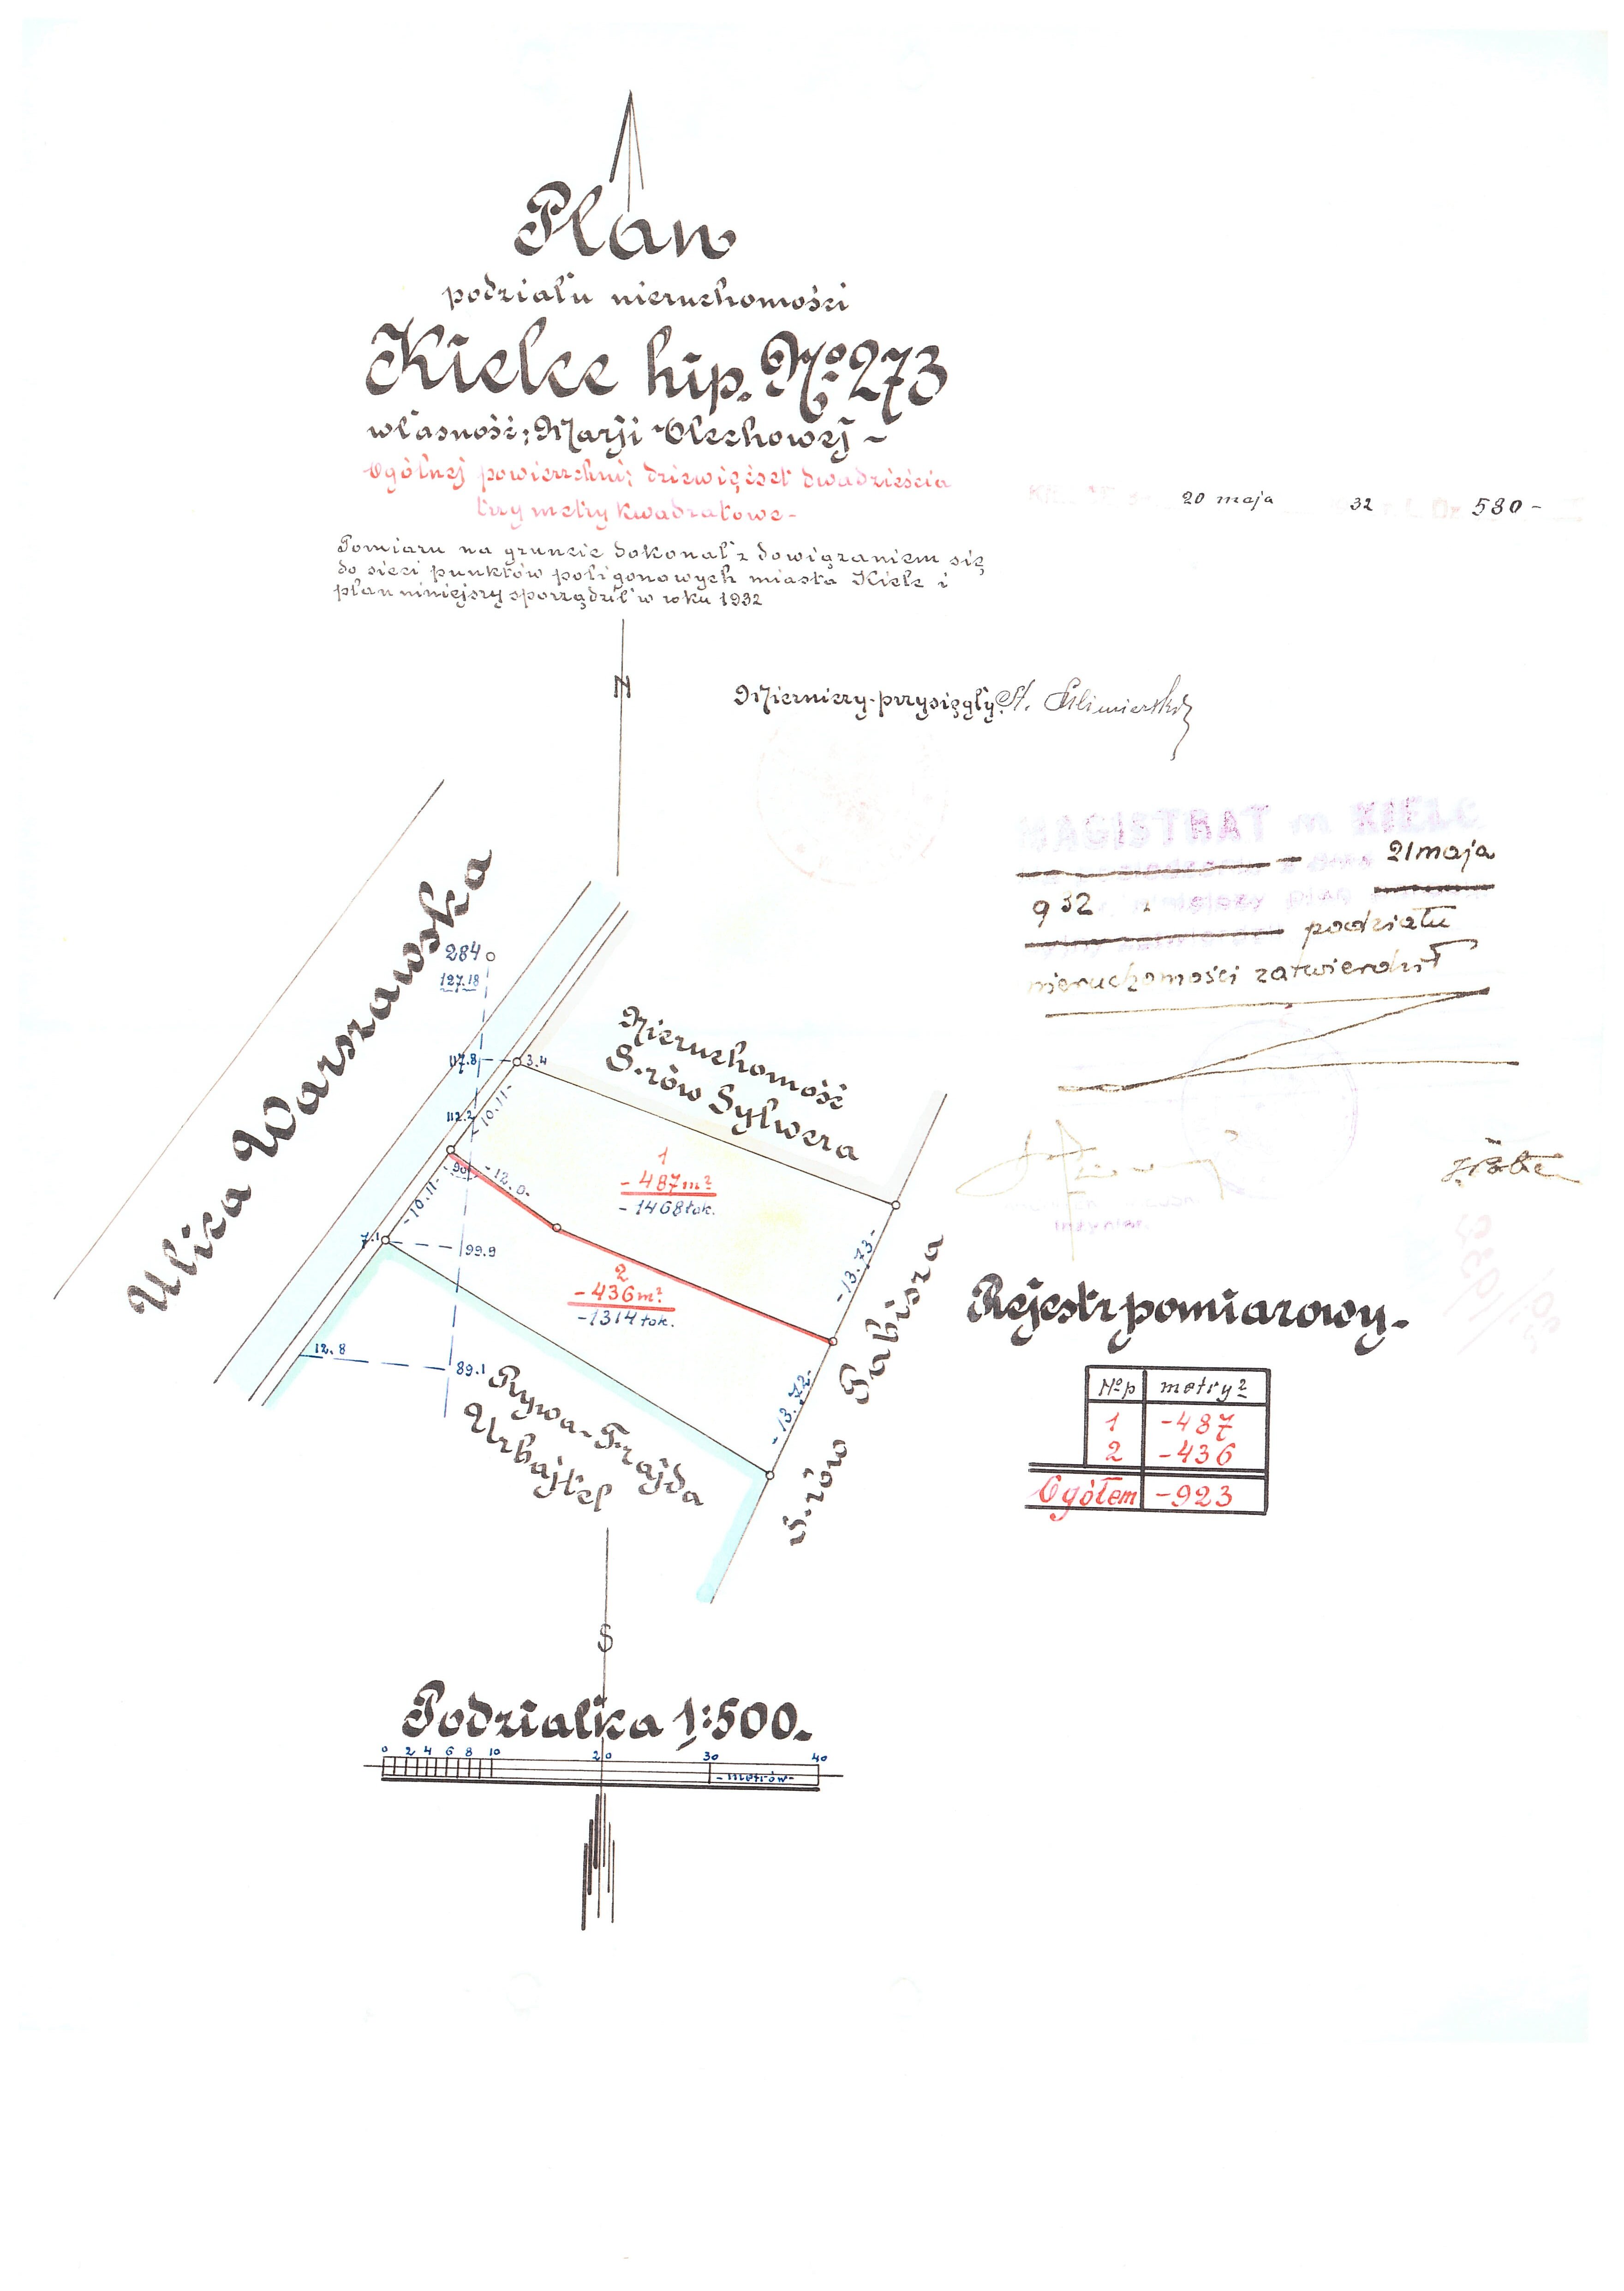 Plan
podziału nieruchomości
Kielce hip. No 273
własność: Marji Olechowej -
Ogólnej powierzchni: dziewięćset dwadzieścia
trzy metry kwadratowe -
20 maja 32 530 -
Pomiaru na gruncie dokonał z dowiązaniem się
do sieci punktów poligonowych miasta Kielc i
plan niniejszy sporządził w roku 1932
N
Mierniczy-przysięgły: St.
MAGISTRAT m KIELC
21 maja
932
podziału
nieruchomości zatwierdził
Inżynier
Ulica Warszawska
284
127.18
117.8
3.4
112.2
-10.11-
-90-
-12.0-
-10.11-
7.1
99.9
12.8
89.1
Nieruchomość
S-rów Sylwera
1
-487 m²
-1468 łok.
2
-436 m²
-1314 łok.
-13.73-
-13.72-
S-rów Tabisza
Rywa-Frajda
Urbajtel
Rejestr pomiarowy-
No p metry²
1 -487
2 -436
Ogółem -923
S
Podziałka 1:500-
0 2 4 6 8 10 20 30 40
-metrów-